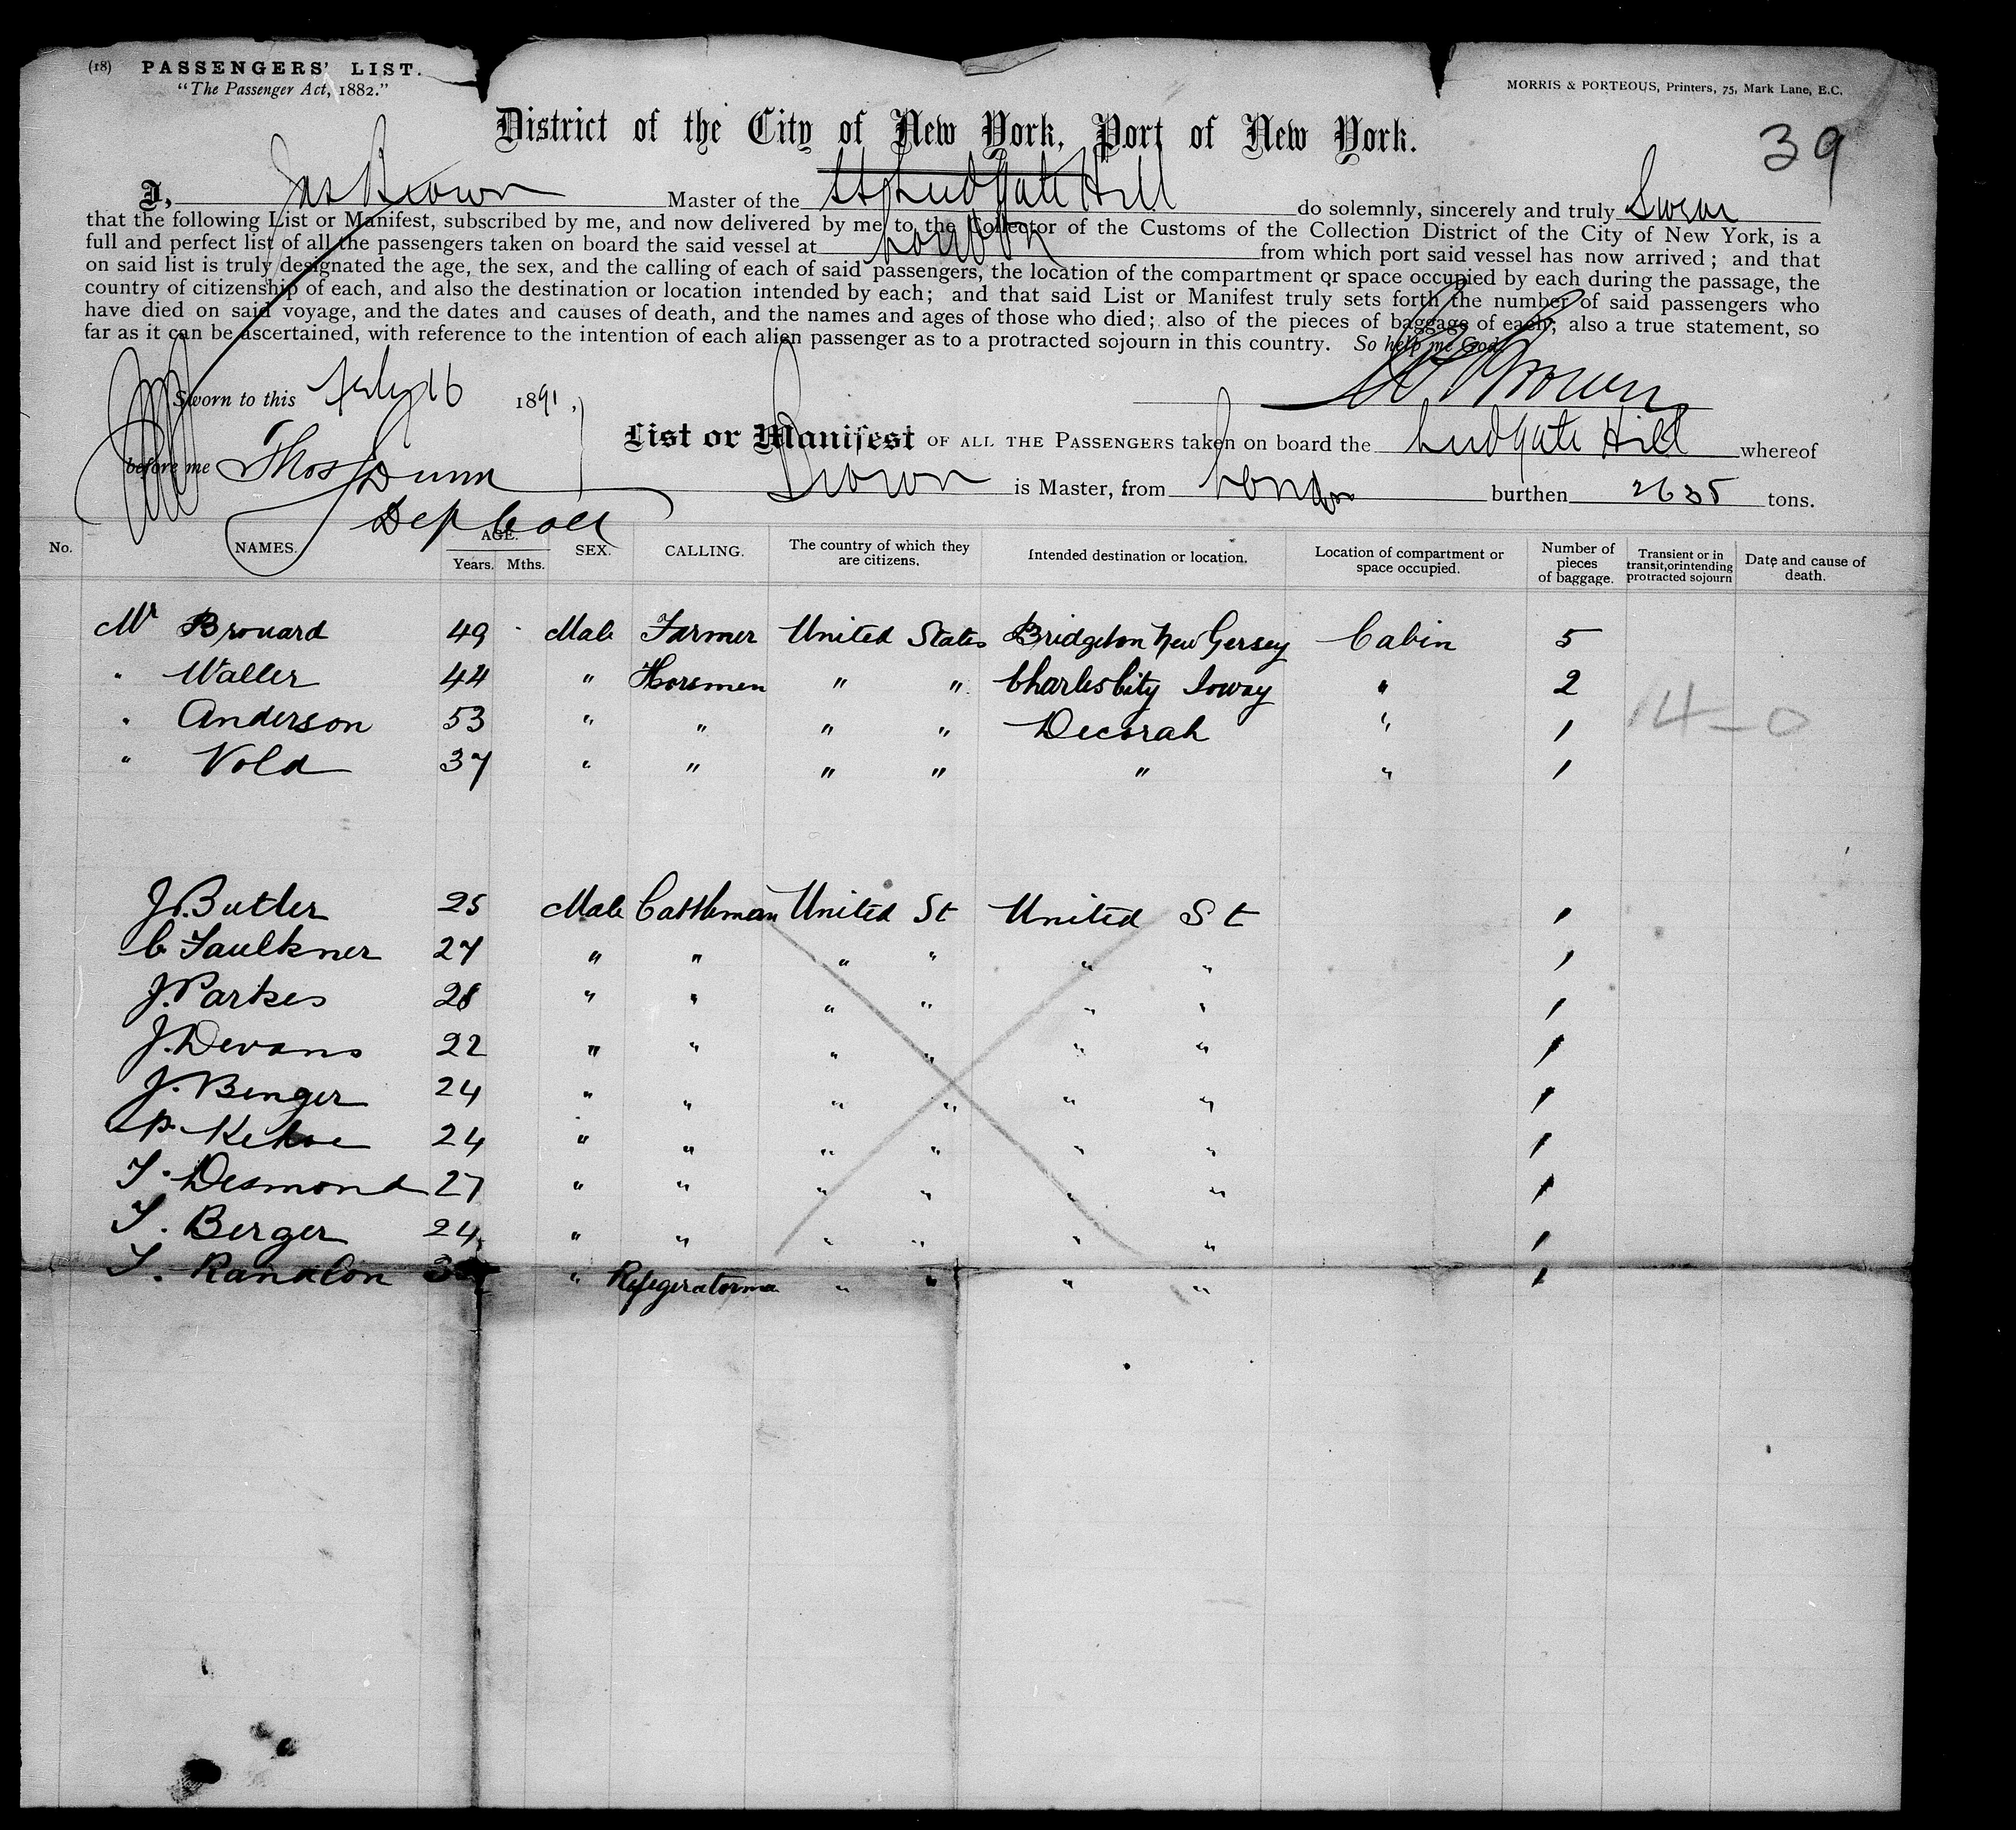 (18) PASSENGERS' LIST.
"The Passenger Act, 1882."
MORRIS & PORTEOUS, Printers, 75, Mark Lane, E.C.
District of the City of New York, Port of New York.
39
I, Jas Brown Master of the SS Ludgate Hill do solemnly, sincerely and truly Swear
that the following List or Manifest, subscribed by me, and now delivered by me to the Collector of the Customs of the Collection District of the City of New York, is a
full and perfect list of all the passengers taken on board the said vessel at London from which port said vessel has now arrived; and that
on said list is truly designated the age, the sex, and the calling of each of said passengers, the location of the compartment or space occupied by each during the passage, the
country of citizenship of each, and also the destination or location intended by each; and that said List or Manifest truly sets forth the number of said passengers who
have died on said voyage, and the dates and causes of death, and the names and ages of those who died; also of the pieces of baggage of each; also a true statement, so
far as it can be ascertained, with reference to the intention of each alien passenger as to a protracted sojourn in this country. So help me God.
Brown
Sworn to this 16 1891,
before me Thos Dunn
Dep Coll
List or Manifest OF ALL THE PASSENGERS taken on board the Ludgate Hill whereof
Brown is Master, from London burthen 2635 tons.
No. NAMES. AGE. Years. Mths. SEX. CALLING. The country of which they are citizens. Intended destination or location. Location of compartment or space occupied. Number of pieces of baggage. Transient or in transit, or intending protracted sojourn Date and cause of death.
Mr Brouard 49 Male Farmer United States Bridgeton New Gersey Cabin 5
" Waller 44 " Horsmen " " Charles City Ioway " 2
" Anderson 53 " " " " Decorah " 1
14-0
" Vold 37 " " " " " " 1
J. Butler 25 Male Cattleman United St United St 1
C Faulkner 27 " " " " " " 1
J. Parkes 28 " " " " " " 1
J. Devans 22 " " " " " " 1
J. Benger 24 " " " " " " 1
P. Kehoe 24 " " " " " " 1
T. Desmond 27 " " " " " " 1
T. Berger 24 " " " " " " 1
T. " Refegeratorma " " " " 1